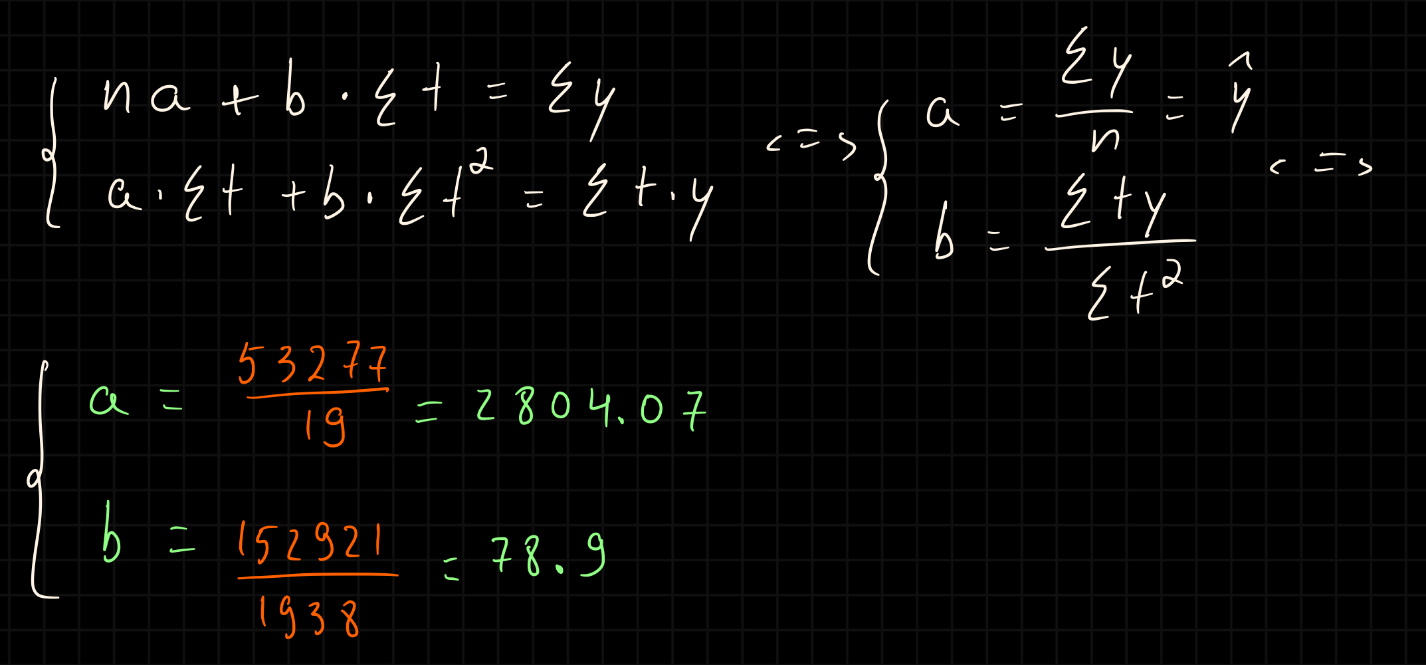 na + b · Σt = Σy
a · Σt + b · Σt² = Σt·y
<=>
a = Σy / n = ŷ
b = Σty / Σt²
<=>
a = 53277 / 19 = 2804.07
b = 152921 / 1938 = 78.9